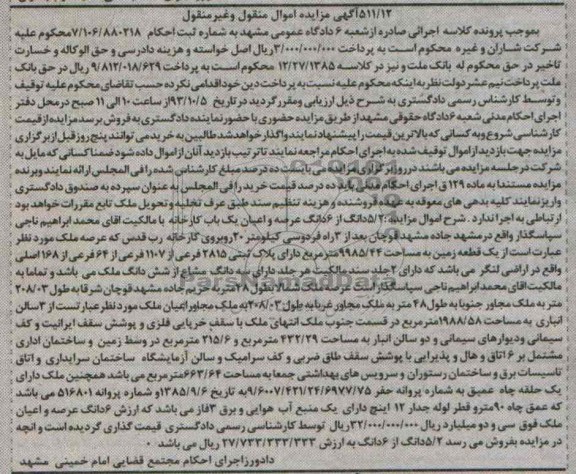 ۵۱۱/۱۲آگهی مزایده اموال منقول وغیرمنقول
بموجب پرونده کلاسه اجرائی صادره ازشعبه ۶ دادگاه عمومی مشهد به شماره ثبت احکام ۷/۱۰۶/۸۸۰۲۱۸محکوم علیه
شرکت شاران و غیره محکوم است به پرداخت ۳/۰۰۰/۰۰۰/۰۰۰ریال اصل خواسته و هزینه دادرسی و حق الوکاله و خسارت
تاخیر در حق محکوم له بانک ملت و نیز در کلاسه ۱۲/۲۷/۱۳۸۵ محکوم است به پرداخت ۹/۸۱۳/۰۱۸/۶۲۹ ریال در حق بانک
ملت پرداخت نیم عشر دولت نظر به اینکه محکوم علیه نسبت به پرداخت دین خود اقدامی نکرده حسب تقاضای محکوم علیه توقیف
و توسط کارشناس رسمی دادگستری به شرح ذیل ارزیابی ومقرر گردید در تاریخ ۹۳/۱۰/۵از ساعت ۱۰ الی ۱۱ صبح در محل دفتر
اجرای احکام مدنی شعبه ۶ دادگاه حقوقی مشهد از طریق مزایده حضوری با حضور نماینده دادگستری به فروش برسد مزایده از قیمت
کارشناسی شروع وبه کسانی که بالاترین قیمت را پیشنهاد نمایند واگذار خواهد شد طالبین به خرید می توانند پنج روز قبل از برگزاری
مزایده جهت بازدید از اموال توقیف شده به اجرای احکام مراجعه نمایند تا ترتیب بازدید آنان از اموال داده شود ضمنا کسانی که مایل به
شرکت در جلسه مزایده می باشند در روز برگزاری مزایده می بایست ده درصد مبلغ کارشناس شده را فی المجلس ارائه نمایند وبرنده
مزایده مستندا به ماده ۱۲۹ ق اجرای احکام مدنی باید ده درصد قیمت خرید را فی المجلس به عنوان سپرده به صندوق دادگستری
واریز نمایند کلیه بدهی های معوقه به عهده فروشنده و هزینه تنظیم سند طبق عرف تخلیه و تحویل ملک تابع مقررات خواهد بود
ارتباطی به اجرا ندارد . شرح اموال مزایده :۵/۲دانگ از ۶دانگ عرصه و اعیان یک باب کارخانه با مالکیت اقای محمد ابراهیم ناجی
سپاسگذار واقع در مشهد جاده مشهد قوچان بعد از ۳ راه فردوسی کیلومتر ۲۰ روبروی کارخانه رب قدس که عرصه ملک مورد نظر
عبارت است از یک قطعه زمین به مساحت ۹۹۸۵/۴۴مترمربع دارای پلاک ثبتی ۲۸۱۵ فرعی از ۱۱۰۷ فرعی از ۶۴ فرعی از ۱۶۸ اصلی
واقع در اراضی لنگر می باشد که دارای ۲جلد سند مالکیت هر جلد دارای سه دانگ مشاع از شش دانگ ملک می باشد و تماما به
مالکیت اقای محمد ابراهیم ناجی سپاسگذار می باشد حدود ملک شمالا بطول ۴۸متر به حریم جاده مشهد قوچان شرقا به طول ۲۰۸/۰۳
متر به ملک مجاور جنوبا به طول۴۸ متر به ملک مجاور غربا به طول ۲۰۸/۰۳به ملک مجاور اعیان ملک مورد نظر عبارتست از ۳سالن
انباری به مساحت ۱۹۸۸/۵۸مترمربع در قسمت جنوب ملک انتهای ملک با سقف خرپایی فلزی و پوشش سقف ایرانیت و کف
سیمانی ودیوارهای سیمانی و دو سالن انبار به مساحت ۴۳۲/۲۹ مترمربع و ۲۱۵/۶ مترمربع در وسط زمین و ساختمان اداری
مشتمل بر ۶اتاق و هال و پذیرایی با پوشش سقف طاق ضربی و کف سرامیک و سالن آزمایشگاه ساختمان سرایداری و اتاق
تاسیسات برق و ساختمان رستوران و سرویس های بهداشتی جمعا به مساحت ۶۶۳/۶۴مترمربع می باشد همچنین ملک دارای
یک حلقه چاه عمیق به شماره پروانه حفر ۹/۶۰۰۷/۴۲۱/۲۴/۶۹۷۷/۷۵به تاریخ ۱۳۸۵/۹/۶و شماره پروانه ۵۱۶۸۰۱ می باشد
که عمق چاه ۹۰مترو قطر لوله جدار ۱۲ اینچ دارای یک منبع آب هوایی و برق ۳فاز می باشد که ارزش ۶دانگ عرصه و اعیان
ملک فوق سی و دو میلیارد ریال ۳۲/۰۰۰/۰۰۰/۰۰۰ریال توسط کارشناسی رسمی دادگستری قیمت گذاری گردیده است و انچه
در مزایده بفروش می رسد ۵/۲دانگ از ۶دانگ به ارزش ۲۷/۷۳۳/۳۳۳/۳۳۳ ریال می باشد .
دادورزاجرای احکام مجتمع قضایی امام خمینی مشهد